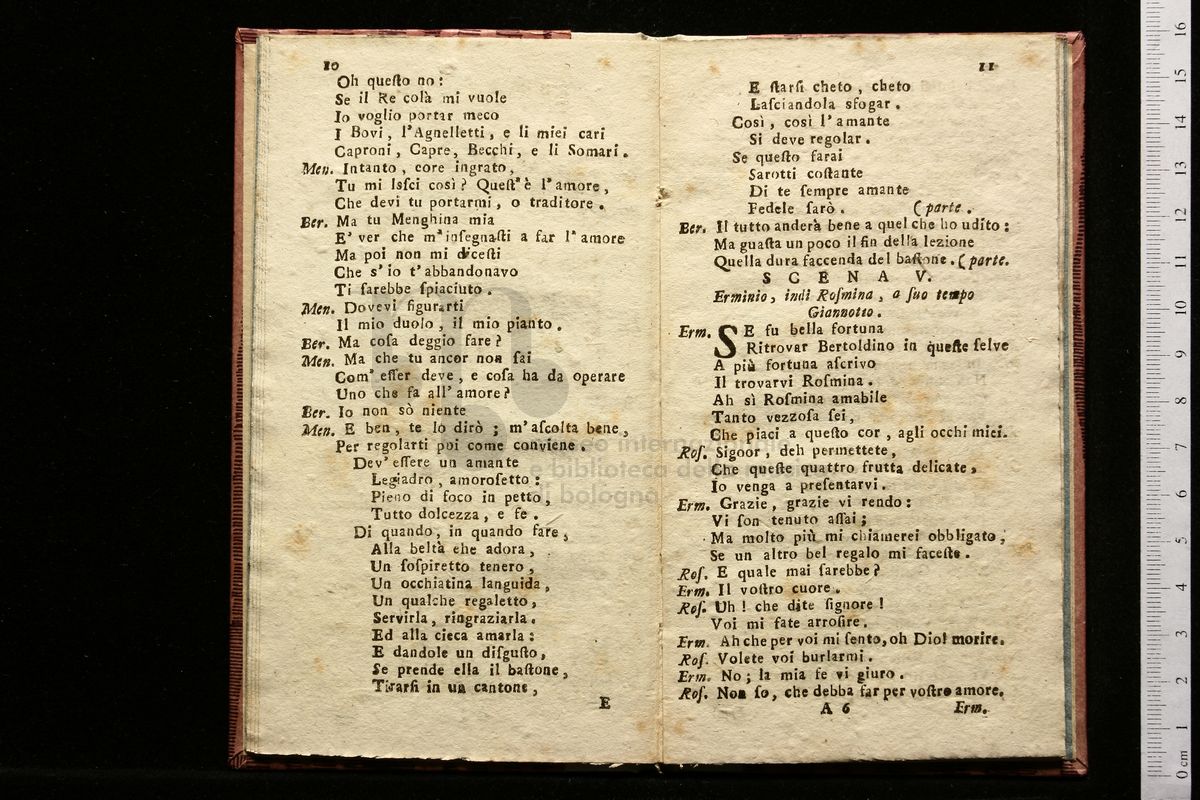 10
Oh questo no:
Se il Re colà mi vuole
Io voglio portar meco
I Bovi, l'Agnelletti, e li miei cari
Caproni, Capre, Becchi, e li Somari.
Men. Intanto, core ingrato,
Tu mi lasci così? Quest'è l'amore,
Che devi tu portarmi, o traditore.
Ber. Ma tu Menghina mia
E' ver che m'insegnasti a far l'amore
Ma poi non mi dicesti
Che s'io t'abbandonavo
Ti sarebbe spiaciuto.
Men. Dovevi figurarti
Il mio duolo, il mio pianto.
Ber. Ma cosa deggio fare?
Men. Ma che tu ancor non sai
Com' esser deve, e cosa ha da operare
Uno che fa all'amore?
Ber. Io non sò niente
Men. E ben, te lo dirò; m'ascolta bene,
Per regolarti poi come conviene.
Dev'essere un amante
Legiadro, amorosetto:
Pieno di foco in petto,
Tutto dolcezza, e fe.
Di quando, in quando fare,
Alla beltà ehe adora,
Un sospiretto tenero,
Un occhiatina languida,
Un qualche regaletto,
Servirla, ringraziarla.
Ed alla cieca amarla:
E dandole un disgusto,
Se prende ella il bastone,
Tirarsi in un cantone,
E
11
E starsi cheto, cheto
Lasciandola sfogar.
Così, così l'amante
Si deve regolar.
Se questo farai
Sarotti costante
Di te sempre amante
Fedele sarò. (parte.
Ber. Il tutto anderà bene a quel che ho udito:
Ma guasta un poco il fin della lezione
Quella dura faccenda del bastone. (parte.
SCENA V.
Erminio, indi Rosmina, a suo tempo
Giannotto.
Erm. SE fu bella fortuna
Ritrovar Bertoldino in queste selve
A più fortuna ascrivo
Il trovarvi Rosmina.
Ah sì Rosmina amabile
Tanto vezzosa sei,
Che piaci a questo cor, agli occhi miei.
Ros. Sigoor, deh permettete,
Che queste quattro frutta delicate,
Io venga a presentarvi.
Erm. Grazie, grazie vi rendo:
Vi son tenuto assai;
Ma molto più mi chiamerei obbligato,
Se un altro bel regalo mi faceste.
Ros. E quale mai sarebbe?
Erm. Il vostro cuore.
Ros. Uh! che dite signore!
Voi mi fate arrosire.
Erm. Ah che per voi mi sento, oh Dio! morire.
Ros. Volete voi burlarmi.
Erm. No; la mia fe vi giuro.
Ros. Non so, che debba far per vostro amore.
A 6 Erm.
museo internazionale
e biblioteca della
di bologna
0 cm 1 2 3 4 5 6 7 8 9 10 11 12 13 14 15 16